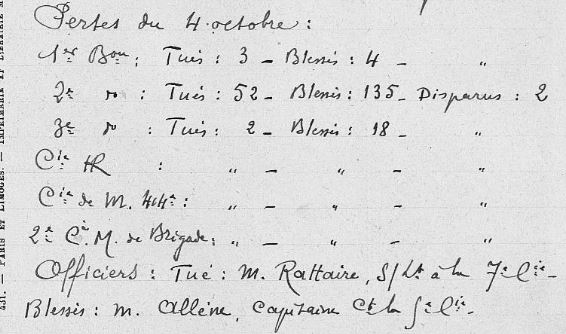 Pertes du 4 octobre :
1er Bon : Tués : 3 – Blessés : 4 – "
2e do : Tués : 52 – Blessés : 135 – Disparus : 2
3e do : Tués : 2 – Blessés : 18 – "
Cie HR : " – " – "
Cie de M. 44e : " – " – "
2e Cie M. de Brigade : " – " – "
Officiers : Tué : M. Rattaire, S/Lt à la 7e Cie –
Blessés : M. Allène, Capitaine Ct la 5e Cie –
PARIS ET LIMOGES. — IMPRIMERIE ET LIBRAIRIE